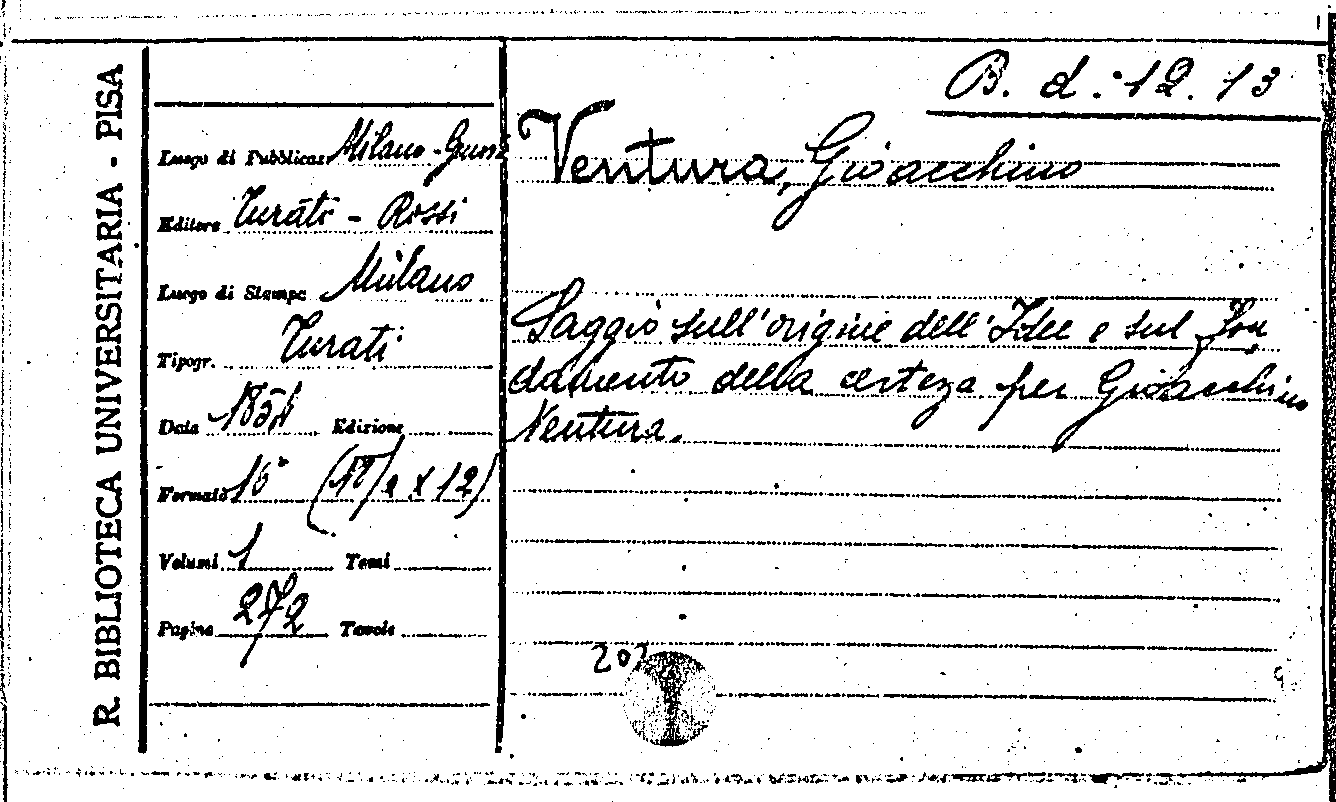 R. BIBLIOTECA UNIVERSITARIA - PISA
B. d. 12. 13
Luogo di Pubblicaz. Milano -
Editore Turati - Rossi
Luogo di Stampa Milano
Tipogr. Turati
Data Edizione
Formato 16° x 12)
Volumi 1 Tomi
Pagine 272 Tavole
Ventura, Gioacchino
Saggio sull'origine dell'Idee e sul fon
damento della certeza per Gioacchino
Ventura.
207